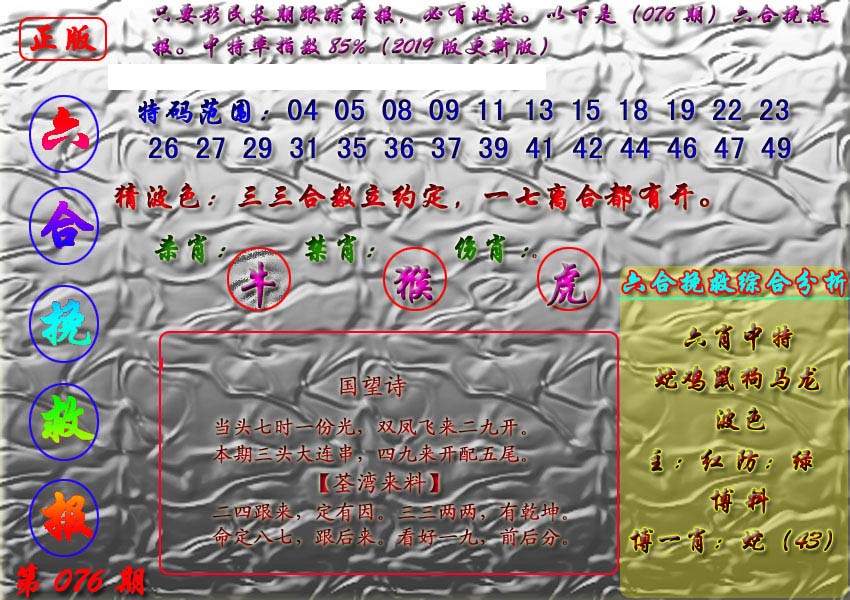 正版
只要彩民长期跟踪本报，必有收获。以下是（076期）六合挽救
报。中特率指数85%（2019版更新版）
六
合
挽
救
报
第 076 期
特码范围：04 05 08 09 11 13 15 18 19 22 23
26 27 29 31 35 36 37 39 41 42 44 46 47 49
猜波色：三三合数立约定，一七离合都有开。
杀肖： 禁肖： 伤肖：。
牛 猴 虎
国望诗
当头七时一份光，双凤飞来二九开。
本期三头大连串，四九来开配五尾。
【荃湾来料】
二四跟来，定有因。三三两两，有乾坤。
命定八七，跟后来。看好一九，前后分。
六合挽救综合分析
六肖中特
蛇鸡鼠狗马龙
波色
主：红防：绿
博料
博一肖：蛇（43）